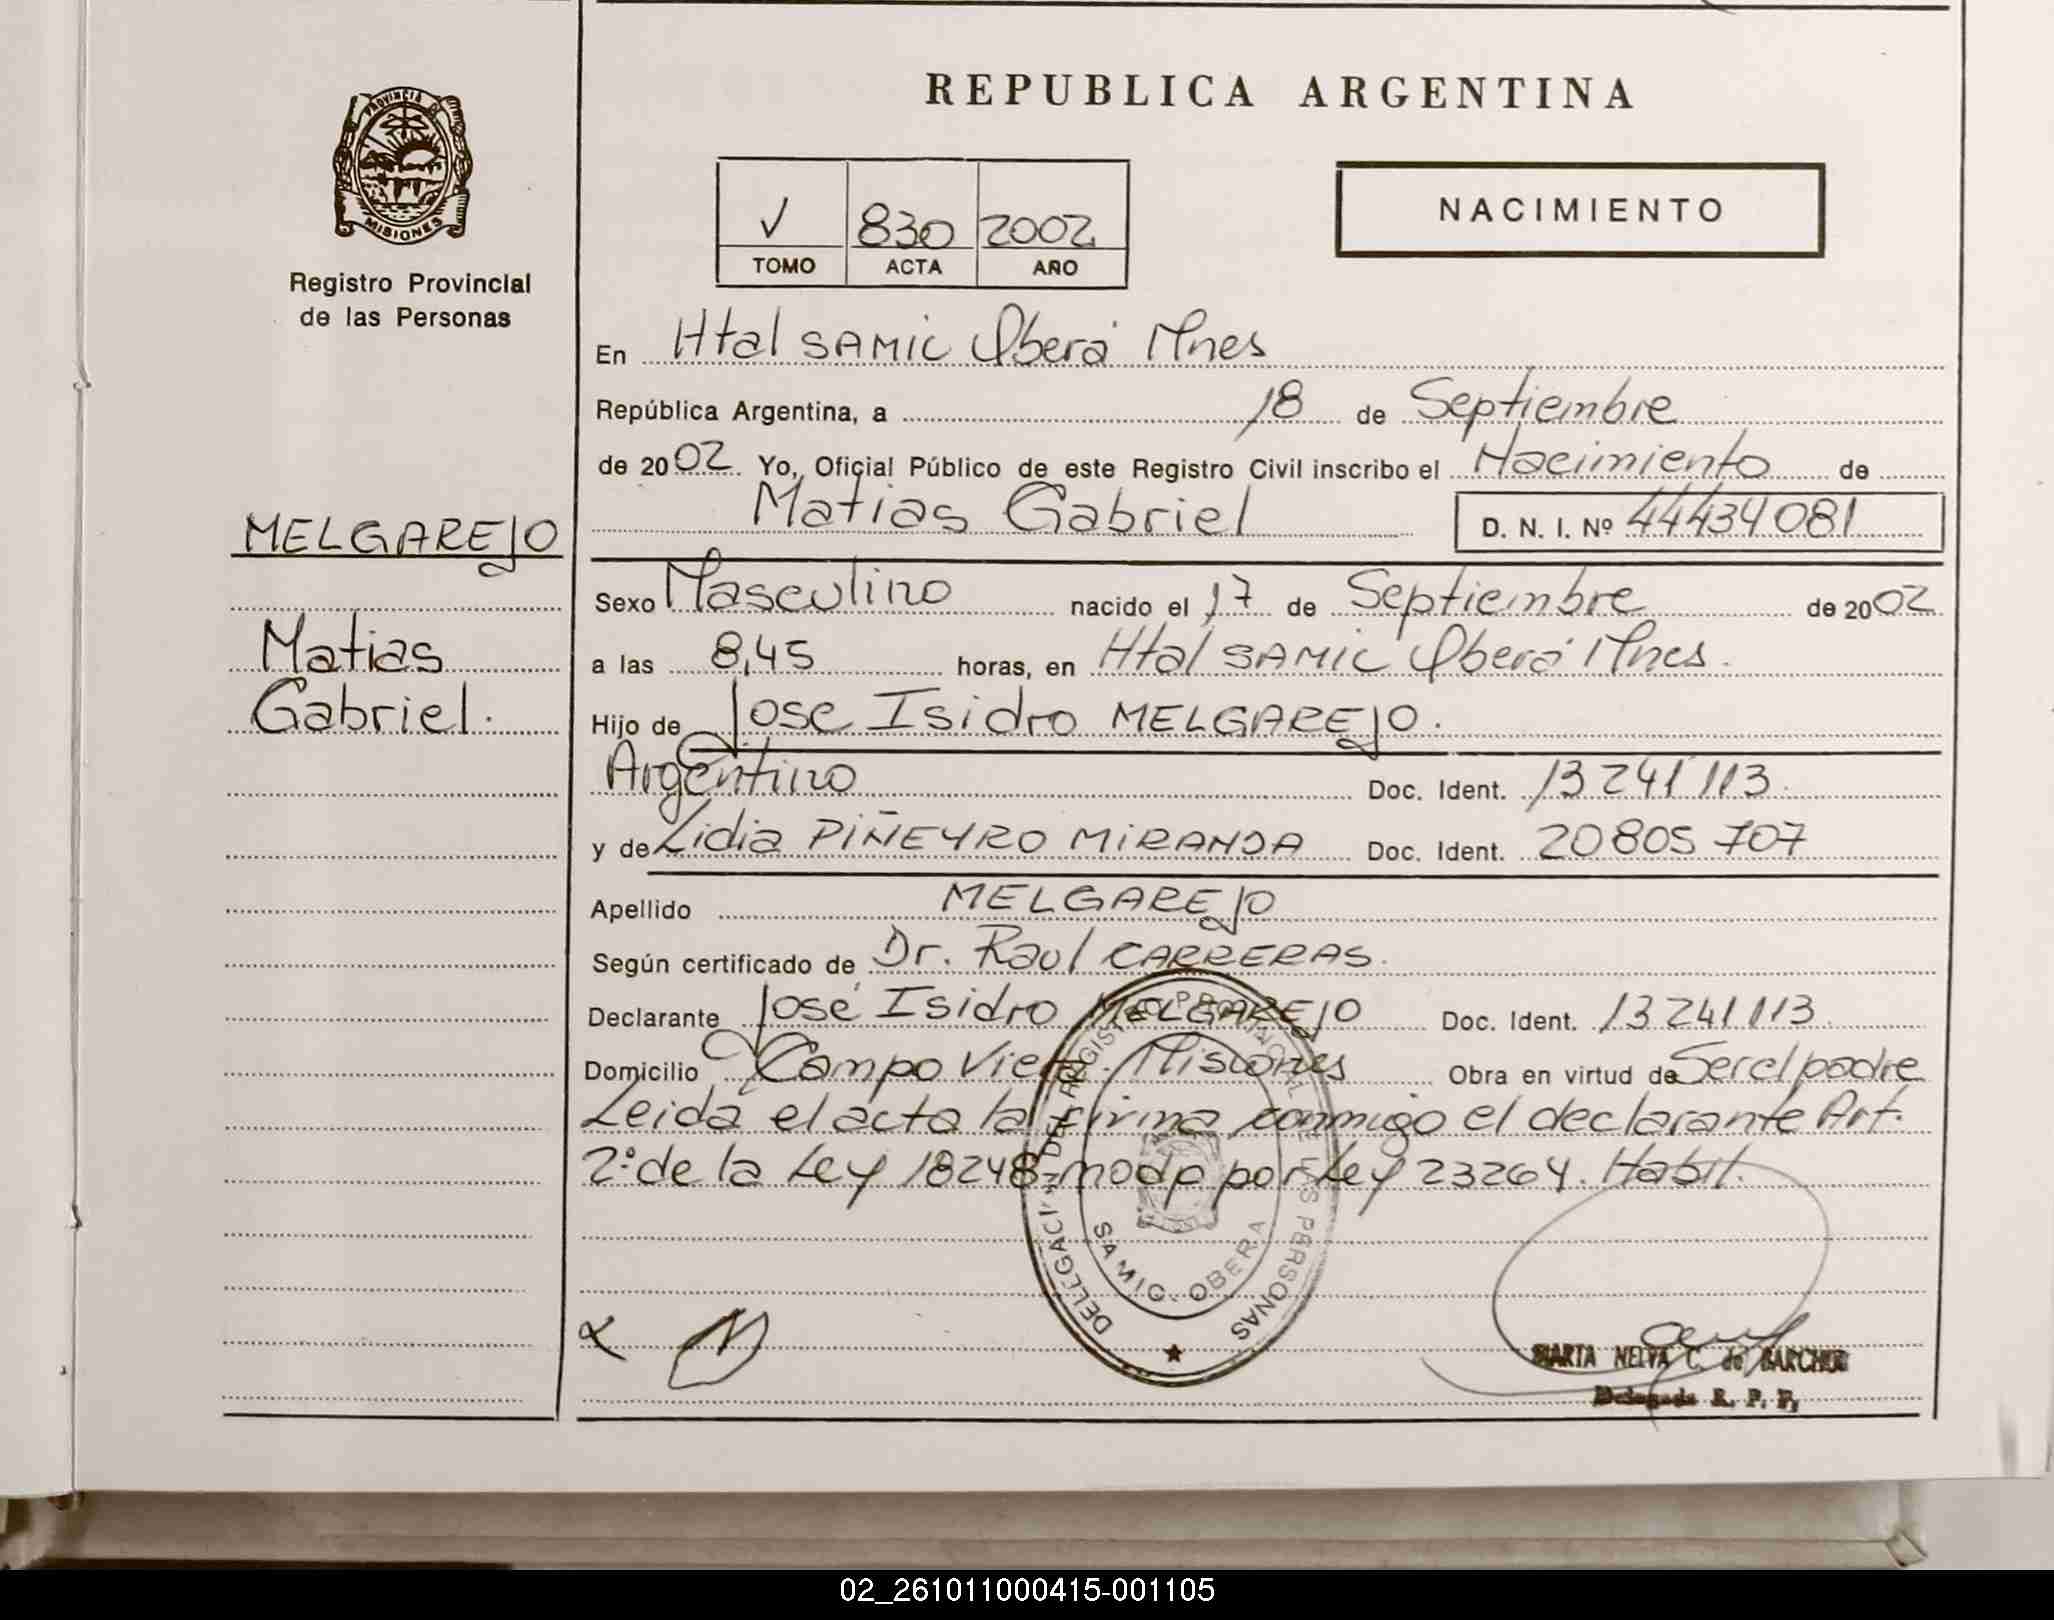 REPUBLICA ARGENTINA
PROVINCIA DE
MISIONES
Registro Provincial
de las Personas
V 830 2002
TOMO ACTA AÑO
NACIMIENTO
En Htal SAMIC Oberá Mnes
República Argentina, a 18 de Septiembre
de 2002. Yo, Oficial Público de este Registro Civil inscribo el Nacimiento de
Matias Gabriel D. N. I. Nº 44434081
MELGAREJO
Matias
Gabriel.
Sexo Masculino nacido el 17 de Septiembre de 2002
a las 8,45 horas, en Htal SAMIC Oberá Mnes.
Hijo de Jose Isidro MELGAREJO.
Argentino Doc. Ident. 13 241 113.
y de Lidia PIÑEYRO MIRANDA Doc. Ident. 20 805 707
Apellido MELGAREJO
Según certificado de Dr. Raul CARRERAS.
Declarante José Isidro MELGAREJO Doc. Ident. 13 241 113.
Domicilio Campo Viera. Misiones Obra en virtud de Ser el padre
Leida el acta la firma conmigo el declarante Art.
2º de la Ley 18248 modp por Ley 23264. Habil.
DELEGACION DEL REGISTRO PROVINCIAL DE LAS PERSONAS
SAMIC. OBERA
MARTA NELVA C. de
Delegada R. P. P.
02_261011000415-001105